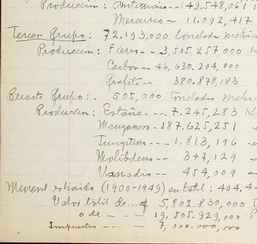 Produccion: Antimonio — 143.548,061
Mercurio — 11.092,417
Tercer Grupo: 72.193,000 toneladas metric
Produccion: Fierro — 3,505.257,000 K
Carbón — 46,630.204,000
Grafito — 380.878,183
Cuarto Grupo: 505,000 Toneladas metri
Produccion: Estaño — 7.245,283 K
Manganeso — 187.625,251
Tungsteno — 1.813,196
Molibdeno — 347,129
Vanadio — 454,009
Mineral extraido (1900-1949) en total: 404,4
Valor total de — $ 5,802.830,000
o de — 19,505.929,000
Impuestos — 7,000.000,000